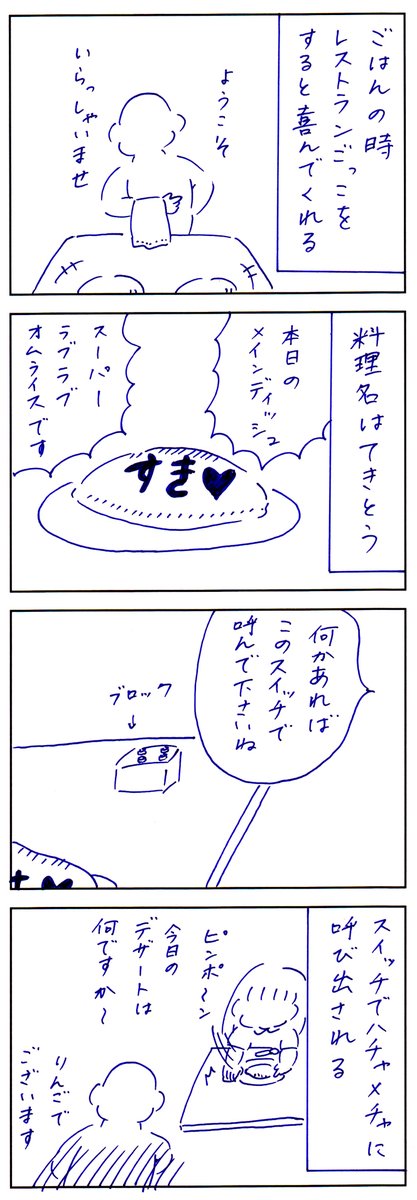 ごはんの時
レストランごっこを
すると喜んでくれる
ようこそ
いらっしゃいませ
料理名はてきとう
本日の
メインディッシュ
スーパー
ラブラブ
オムライスです
すき♥
何かあれば
このスイッチで
呼んで下さいね
ブロック
↓
スイッチでハチャメチャに
呼び出される
ピンポ〜ン
今日の
デザートは
何ですか〜
りんごで
ございます